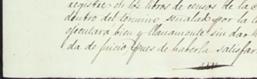 registre de los libros de censos de la
dentro del termino señalado por la
ejecutara bien y llanamente sin dar
da de juicio, pues de haberla satisfar